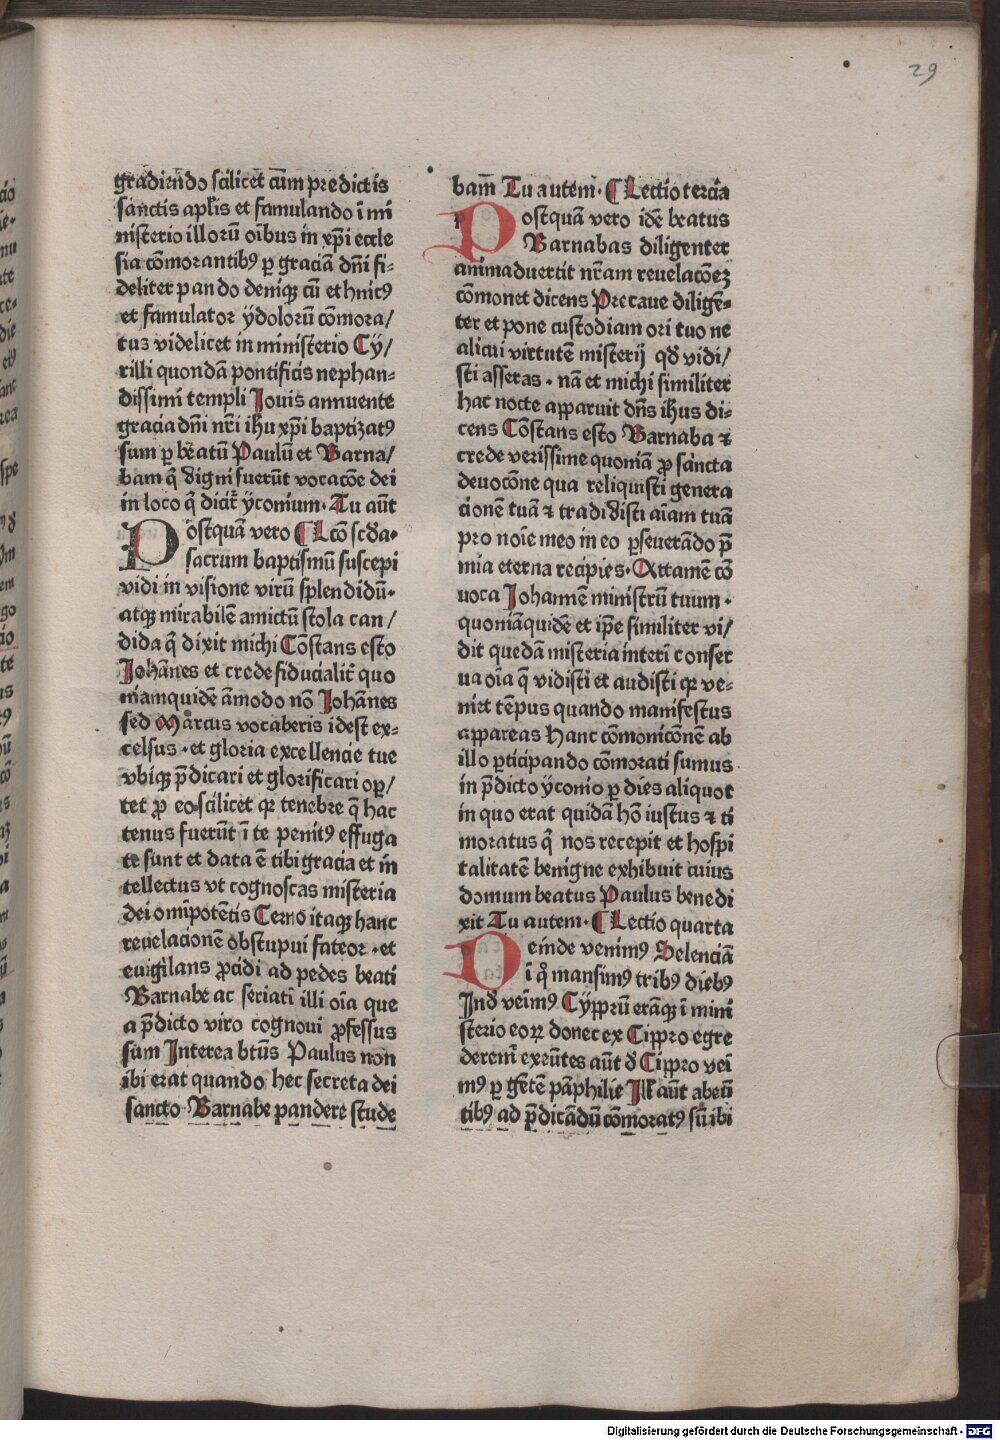 29
gradiēndo scilicet cūm predictis
sanctis apl̄is et famulando ī mi
nisterio illorū oībus in xp̄i eccle
sia cōmorantibꝰ ꝑ graciā dn̄i fi⸗
deliter pando deniqꝫ cū ethnicꝰ
et famulator ẏdolorū cōmora/
tus videlicet in ministerio Cẏ/
rilli quondā pontificis nephan⸗
dissimi templi Jouis annuente
gracia dn̄i nr̄i ih̄u xp̄i baptizatꝰ
sum ꝑ bēatū Paulū et Barna/
bam q̄ digni fuerūt vocacōe dei
in loco q̄ dicit̄ ẏconium· Tu aūt
Postquā vero ¶ Lcō scd̄a·
sacrum baptismū suscepi
vidi in visione virū splendidū·
atqꝫ mirabilē amictū stola can/
dida q̄ dixit michi Cōstans esto
Johānes et crede fiducialit̄ quo
niamquidē āmodo nō Johānes
sed Marcus vocaberis idest ex⸗
celsus · et gloria excellencie tue
vbiqꝫ p̄dicari et glorificari opꝛ/
tet ꝓ eo scilicet qꝛ tenebre q̄ hac
tenus fuerūt ī te penitꝰ effuga
te sunt et data ē tibi gracia et in
tellectus vt cognoscas misteria
dei omīpotētis Cerno itaqꝫ hanc
reuelacionē obstupui fateor · et
euigilans ꝓcidi ad pedes beati
Barnabe ac seriatī illi oīa que
a p̄dicto viro cognoui ꝓfessus
sum Interea btūs Paulus non
ibi erat quando hec secreta dei
sancto Barnabe pandere stude
bam̄ Tu autem· ¶ Lectio tercia
Postquā vero idē beatus
Barnabas diligenter
animaduertit nr̄am reuelacōeꝫ
cōmonet dicens Precaue diligē⸗
ter et pone custodiam ori tuo ne
alicui virtutē misterij qd̄ vidi/
sti asseras · nā et michi similiter
hac nocte apparuit dn̄s ih̄us di⸗
cens Cōstans esto Barnaba ⁊
crede verissime quoniā ꝓ sancta
deuocōne qua reliquisti genera
cionē tuā ⁊ tradidisti aīam tuā
pro noīe meo in eo ꝑseuerādo p̄
mia eterna recipies· Attamē cō
uoca Johannē ministrū tuum ·
quoniāquidē et ip̄e similiter vi/
dit quedā misteria interī conser
ua oīa q̄ vidisti et audisti qꝛ ve⸗
niet tēpus quando manifestus
appareas Hanc cōmonicōnē ab
illo ꝑticipando cōmorati sumus
in p̄dicto ẏconio ꝑ dies aliquot
in quo erat quidā hō iustus ⁊ ti
moratus q̄ nos recepit et hospi
talitatē benigne exhibuit cuius
domum beatus Paulus benedi
xit Tu autem· ¶ Lectio quarta
Deinde venimꝰ Selenciā
ī qͦ mansimꝰ tribꝰ diebꝰ
Jnd̄ veīmꝰ Cẏprū erāqꝫ ī mini
sterio eoꝝ donec ex Cipro egre
deremī exeūtes aūt d̄ Cipro veī
mꝰ ꝑ gētē pāphilie Jll̄ aūt abeū
tibꝰ ad p̄dicādū cōmoratꝰ sū ibi
Digitalisierung gefördert durch die Deutsche Forschungsgemeinschaft - DFG